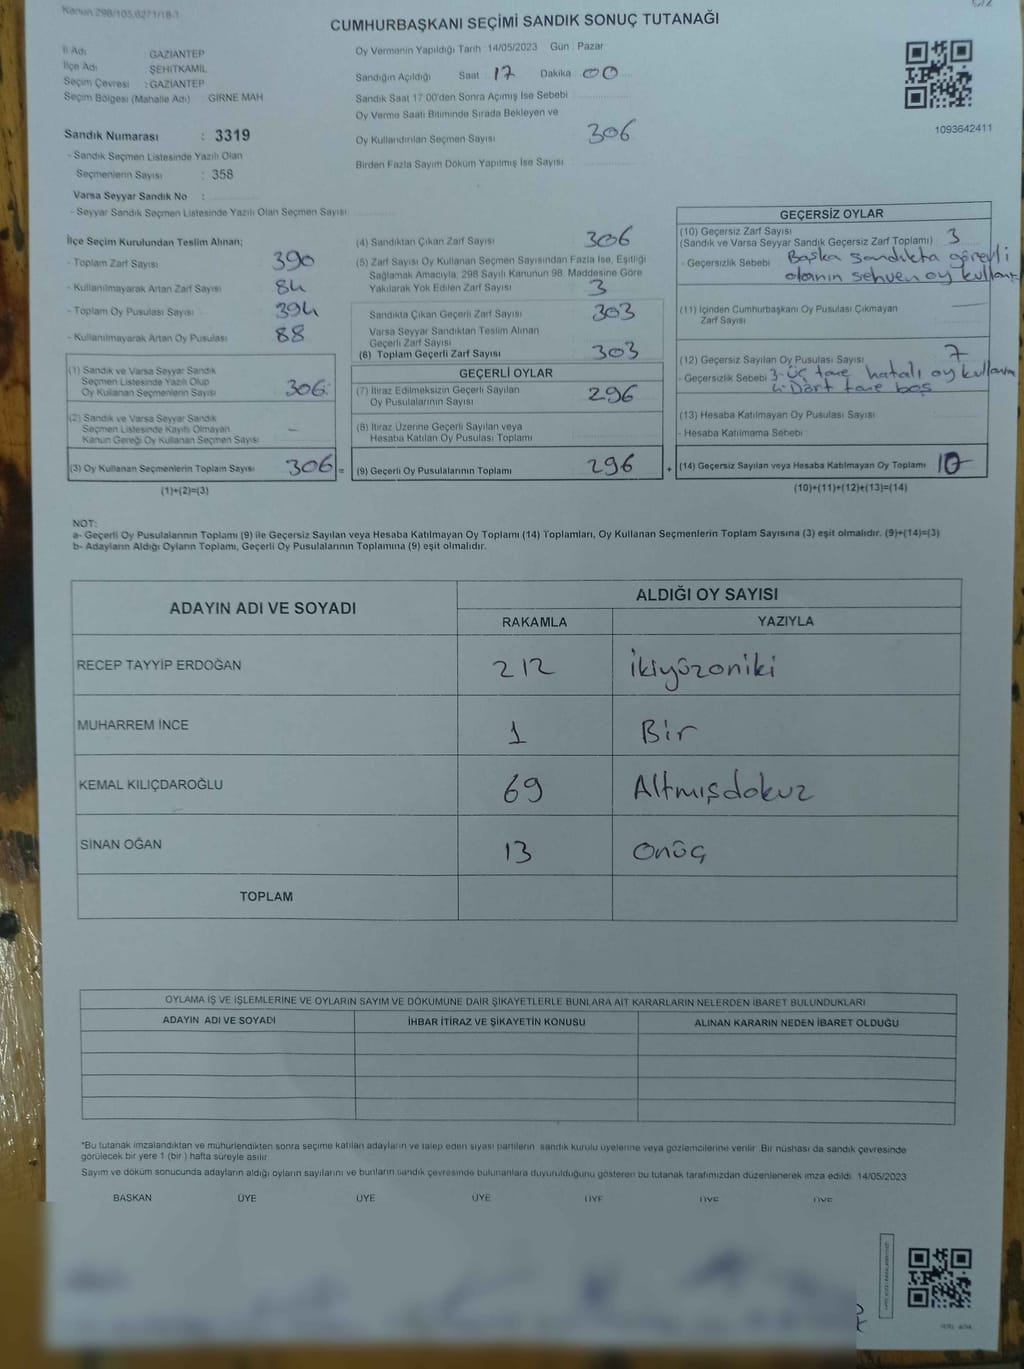 Kanun 298/105,6271/18-1
CUMHURBAŞKANI SEÇİMİ SANDIK SONUÇ TUTANAĞI
İl Adı : GAZİANTEP
İlçe Adı : ŞEHİTKAMİL
Seçim Çevresi : GAZİANTEP
Seçim Bölgesi (Mahalle Adı) GİRNE MAH
Sandık Numarası : 3319
- Sandık Seçmen Listesinde Yazılı Olan
Seçmenlerin Sayısı : 358
Varsa Seyyar Sandık No :
- Seyyar Sandık Seçmen Listesinde Yazılı Olan Seçmen Sayısı
Oy Vermenin Yapıldığı Tarih :14/05/2023 Gün : Pazar
Sandığın Açıldığı Saat : 17 Dakika : 00
Sandık Saat 17:00'den Sonra Açımış İse Sebebi
Oy Verme Saati Bitiminde Sırada Bekleyen ve
Oy Kullandırılan Seçmen Sayısı 306
Birden Fazla Sayım Döküm Yapılmış İse Sayısı
1093642411
İlçe Seçim Kurulundan Teslim Alınan;
- Toplam Zarf Sayısı 390
- Kullanılmayarak Artan Zarf Sayısı 84
- Toplam Oy Pusulası Sayısı 394
- Kullanılmayarak Artan Oy Pusulası 88
(1) Sandık ve Varsa Seyyar Sandık
Seçmen Listesinde Yazılı Olup
Oy Kullanan Seçmenlerin Sayısı 306
(2) Sandık ve Varsa Seyyar Sandık
Seçmen Listesinde Kayıtlı Olmayan
Kanun Gereği Oy Kullanan Seçmen Sayısı -
(3) Oy Kullanan Seçmenlerin Toplam Sayısı 306 =
(1)+(2)=(3)
(4) Sandıktan Çıkan Zarf Sayısı 306
(5) Zarf Sayısı Oy Kullanan Seçmen Sayısından Fazla İse, Eşitliği
Sağlamak Amacıyla, 298 Sayılı Kanunun 98. Maddesine Göre
Yakılarak Yok Edilen Zarf Sayısı 3
Sandıkta Çıkan Geçerli Zarf Sayısı 303
Varsa Seyyar Sandıktan Teslim Alınan
Geçerli Zarf Sayısı
(6) Toplam Geçerli Zarf Sayısı 303
GEÇERLİ OYLAR
(7) İtiraz Edilmeksizin Geçerli Sayılan
Oy Pusulalarının Sayısı 296
(8) İtiraz Üzerine Geçerli Sayılan veya
Hesaba Katılan Oy Pusulası Toplamı
(9) Geçerli Oy Pusulalarının Toplamı 296 +
GEÇERSİZ OYLAR
(10) Geçersiz Zarf Sayısı
(Sandık ve Varsa Seyyar Sandık Geçersiz Zarf Toplamı) 3
- Geçersizlik Sebebi Başka sandıkta görevli
olanın sehven oy
(11) İçinden Cumhurbaşkanı Oy Pusulası Çıkmayan
Zarf Sayısı
(12) Geçersiz Sayılan Oy Pusulası Sayısı 7
- Geçersizlik Sebebi 3-üç tane hatalı oy
4-Dört tane boş
(13) Hesaba Katılmayan Oy Pusulası Sayısı
- Hesaba Katılmama Sebebi
(14) Geçersiz Sayılan veya Hesaba Katılmayan Oy Toplamı 10
(10)+(11)+(12)+(13)=(14)
NOT:
a- Geçerli Oy Pusulalarının Toplamı (9) ile Geçersiz Sayılan veya Hesaba Katılmayan Oy Toplamı (14) Toplamları, Oy Kullanan Seçmenlerin Toplam Sayısına (3) eşit olmalıdır. (9)+(14)=(3)
b- Adayların Aldığı Oyların Toplamı, Geçerli Oy Pusulalarının Toplamına (9) eşit olmalıdır.
ADAYIN ADI VE SOYADI
ALDIĞI OY SAYISI
RAKAMLA YAZIYLA
RECEP TAYYİP ERDOĞAN 212 İkiyüzoniki
MUHARREM İNCE 1 Bir
KEMAL KILIÇDAROĞLU 69 Altmışdokuz
SİNAN OĞAN 13 Onüç
TOPLAM
OYLAMA İŞ VE İŞLEMLERİNE VE OYLARIN SAYIM VE DÖKÜMÜNE DAİR ŞİKAYETLERLE BUNLARA AİT KARARLARIN NELERDEN İBARET BULUNDUKLARI
ADAYIN ADI VE SOYADI İHBAR İTİRAZ VE ŞİKAYETİN KONUSU ALINAN KARARIN NEDEN İBARET OLDUĞU
*Bu tutanak imzalandıktan ve mühürlendikten sonra seçime katılan adayların ve talep eden siyasi partilerin sandık kurulu üyelerine veya gözlemcilerine verilir. Bir nüshası da sandık çevresinde
görülecek bir yere 1 (bir) hafta süreyle asılır
Sayım ve döküm sonucunda adayların aldığı oyların sayılarını ve bunların sandık çevresinde bulunanlara duyurulduğunu gösteren bu tutanak tarafımızdan düzenlenerek imza edildi. 14/05/2023
BAŞKAN ÜYE ÜYE ÜYE ÜYE ÜYE ÜYE